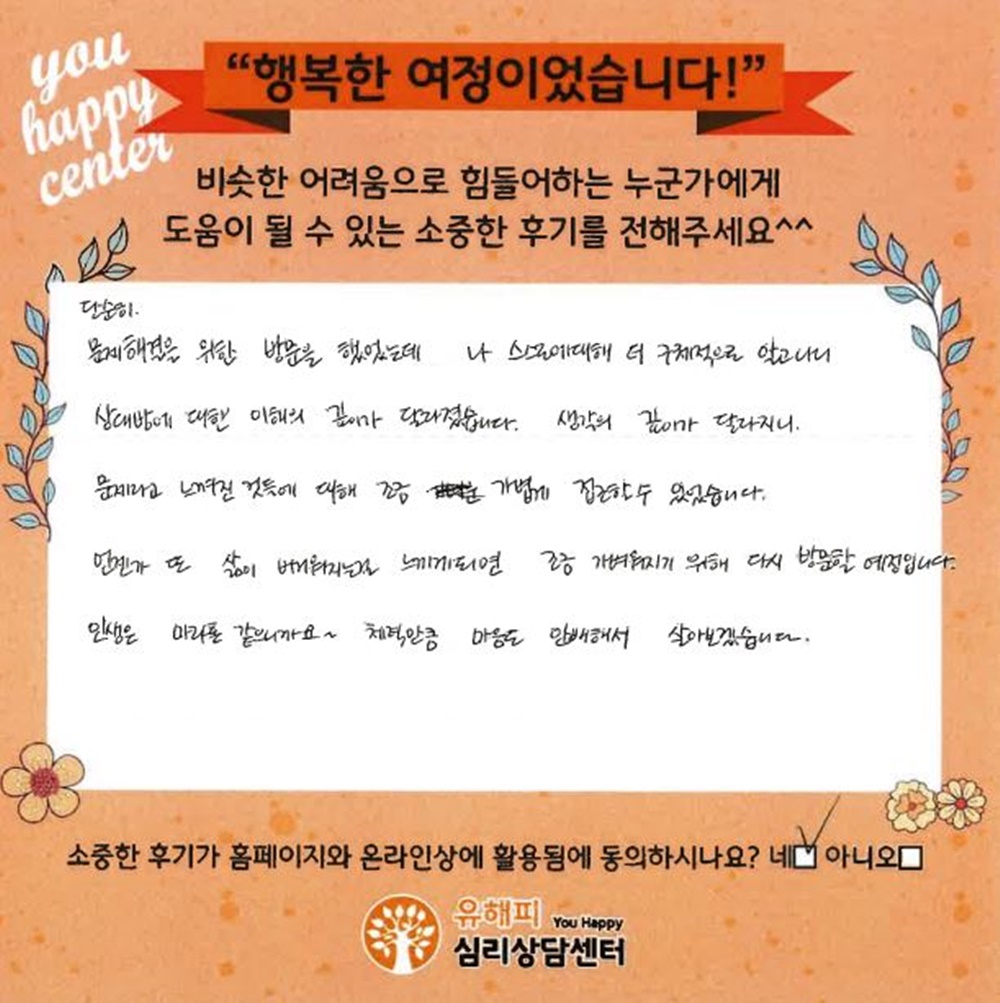 you
happy
center
“행복한 여정이었습니다!”
비슷한 어려움으로 힘들어하는 누군가에게
도움이 될 수 있는 소중한 후기를 전해주세요^^
단순히.
문제해결을 위한 방문을 했었는데 나 스스로에대해 더 구체적으로 알고나니
상대방에 대한 이해의 깊이가 달라졌습니다. 생각의 깊이가 달라지니.
문제라고 느껴진 것들에 대해 조금 가볍게 접근할수 있었습니다.
언젠가 또 삶이 버거워지는걸 느끼게되면 조금 가벼워지기 위해 다시 방문할 예정입니다.
인생은 마라톤 같으니까요~ 체력만큼 마음도 안배해서 살아보겠습니다.
소중한 후기가 홈페이지와 온라인상에 활용됨에 동의하시나요? 네☑ 아니오☐
유해피 You Happy
심리상담센터